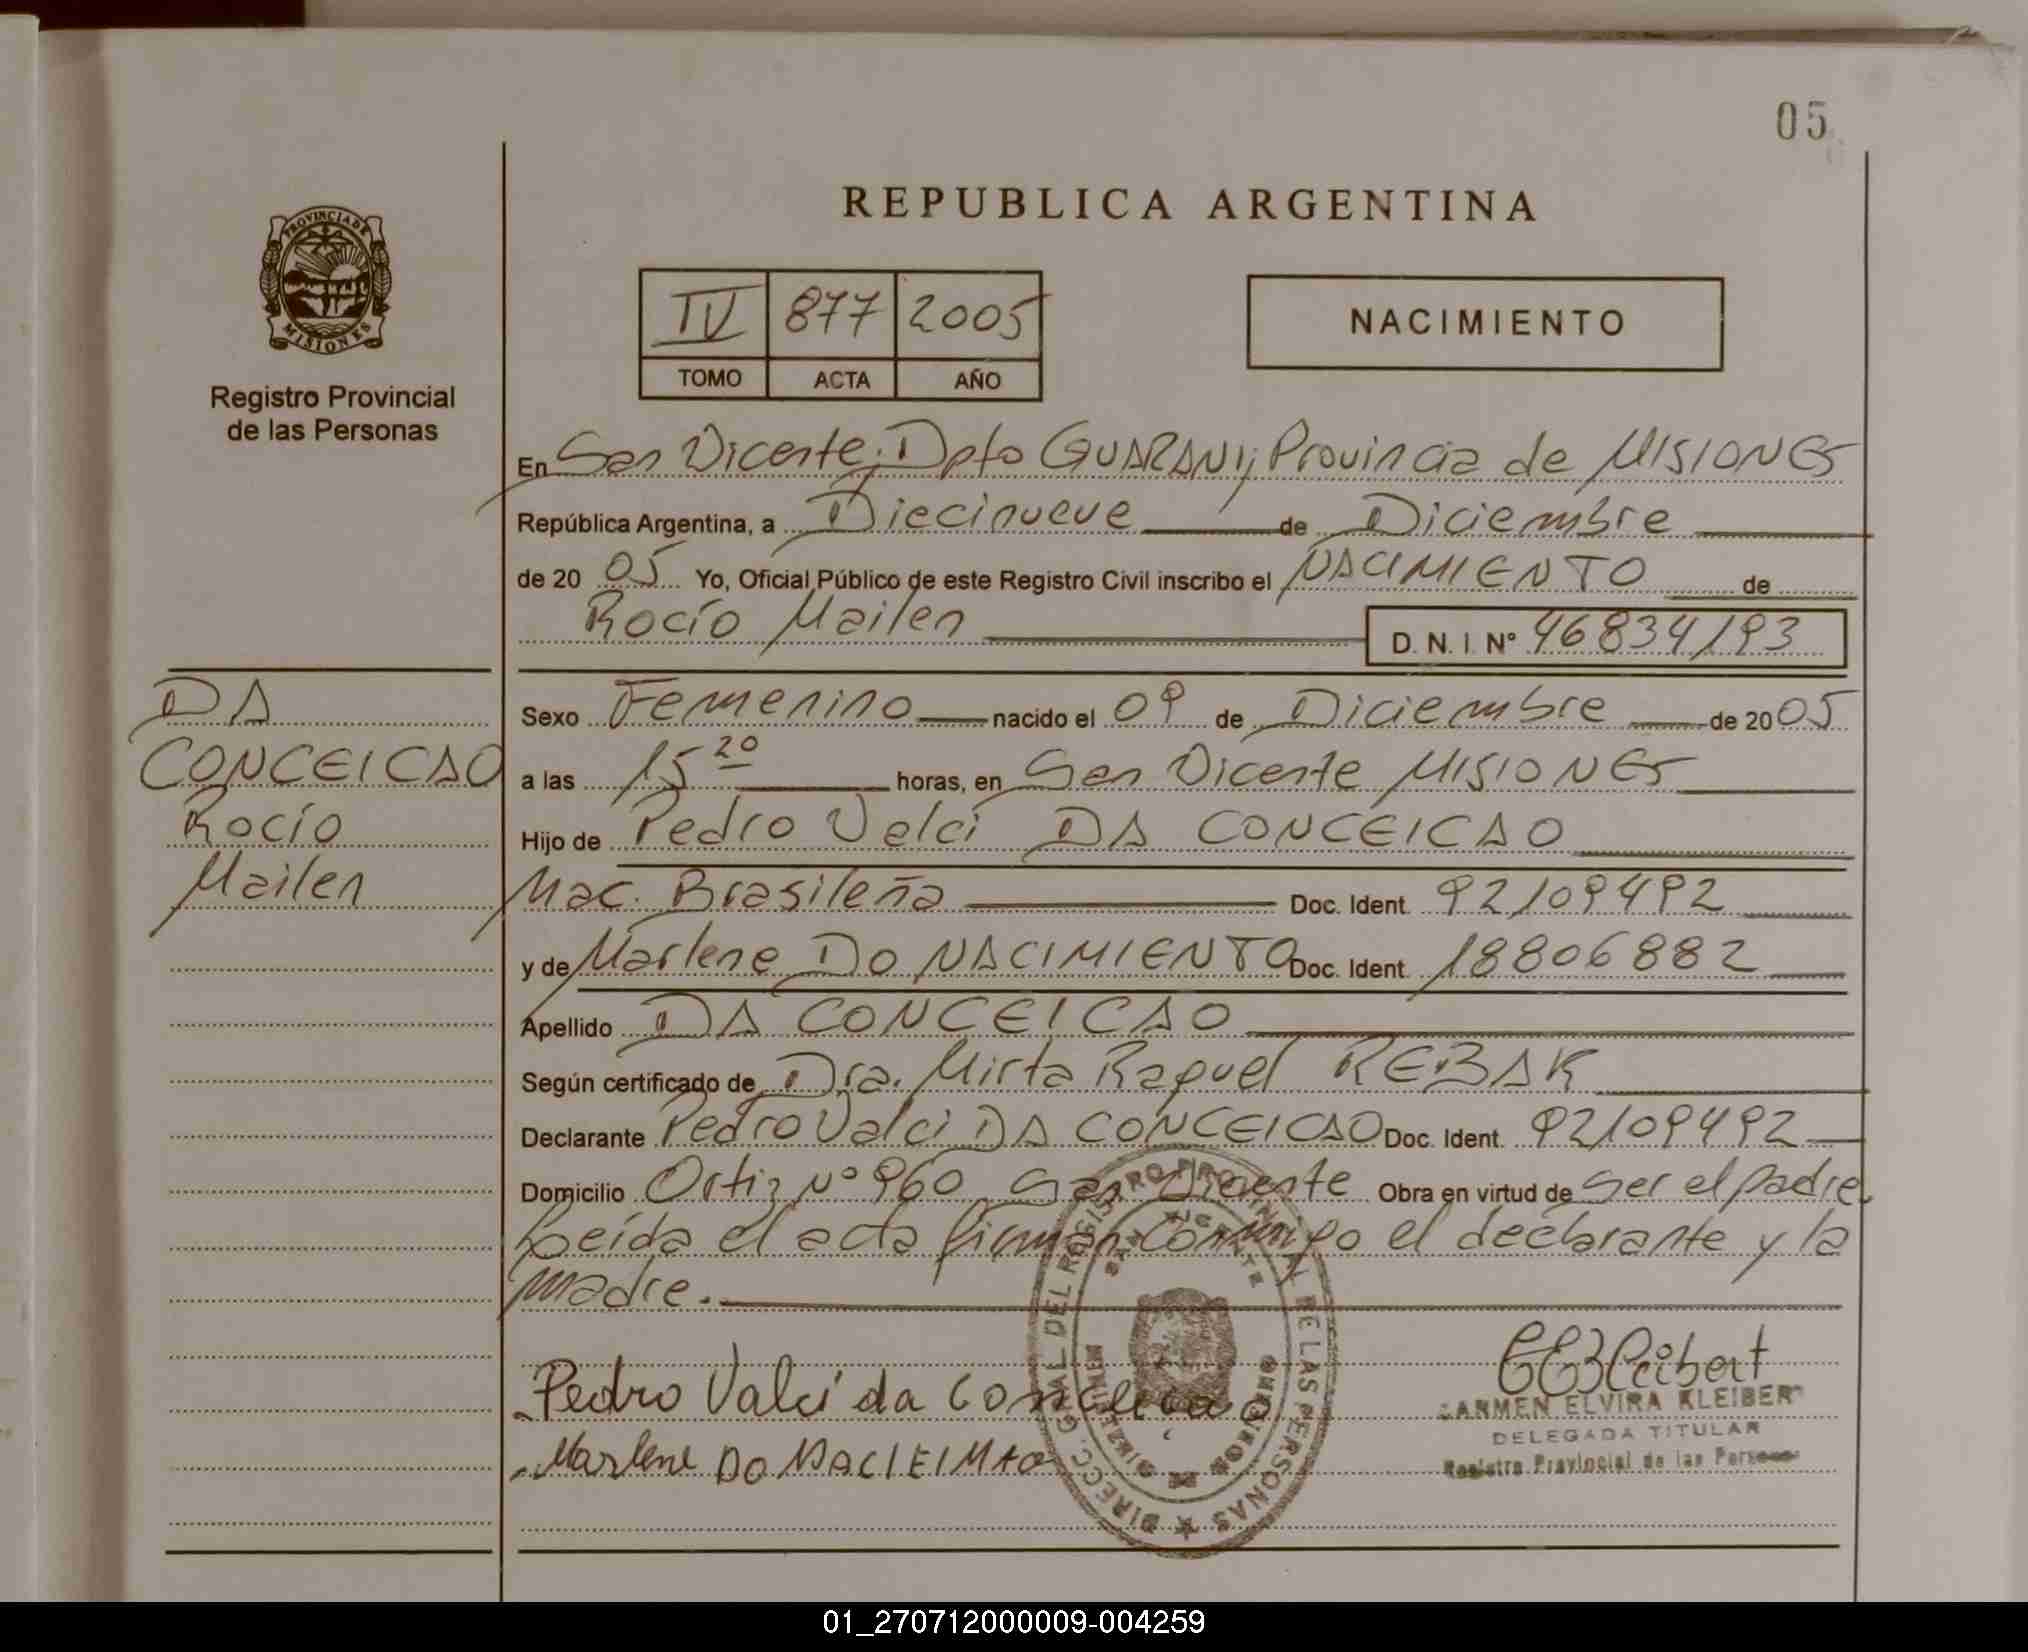 05
REPUBLICA ARGENTINA
PROVINCIA DE
MISIONES
Registro Provincial
de las Personas
IV 877 2005
TOMO ACTA AÑO
NACIMIENTO
En San Vicente, Dpto GUARANI, Provincia de MISIONES
República Argentina, a Diecinueve de Diciembre
de 20 05 Yo, Oficial Público de este Registro Civil inscribo el NACIMIENTO de
Rocío Mailen D. N. I. Nº 46834193
DA
CONCEICAO
Rocío
Mailen
Sexo Femenino nacido el 09 de Diciembre de 20 05
a las 15 20 horas, en San Vicente MISIONES
Hijo de Pedro Valci DA CONCEICAO
Nac. Brasileña Doc. Ident. 92109492
y de Marlene DO NACIMIENTO Doc. Ident. 18806882
Apellido DA CONCEICAO
Según certificado de Dra. Mirta Raquel REBAK
Declarante Pedro Valci DA CONCEICAO Doc. Ident. 92109492
Domicilio Ortiz Nº 960 San Vicente Obra en virtud de ser el padre
Leída el acta firman conmigo el declarante y la
madre.
Pedro Valci da Conceicao
Marlene DO NACIEIMTO
CARMEN ELVIRA KLEIBER
DELEGADA TITULAR
Registro Provincial de las Personas
DIRECC. GRAL. DEL REGISTRO PROVINCIAL DE LAS PERSONAS
SAN VICENTE
01_270712000009-004259